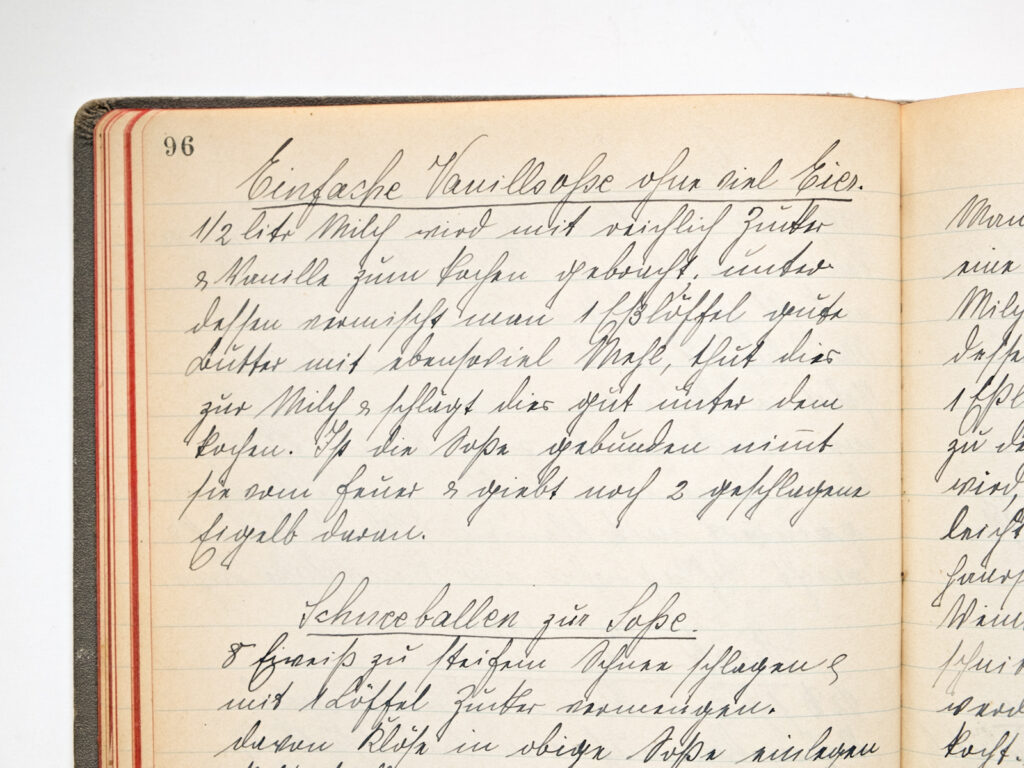 96
Einfache Vanillsoße ohne viel Eier.
1/2 litr Milch wird mit reichlich Zucker
& Vanille zum kochen gebracht, unter
dessen vermischt man 1 Eßlöffel gute
Butter mit ebensoviel Mehl, thut dies
zur Milch & schlägt dies gut unter dem
kochen. Ist die Soße gebunden nimmt
sie vom Feuer & giebt noch 2 geschlagene
Eigelb daran.
Schneeballen zur Soße.
8 Eiweiß zu steifem Schnee schlagen &
mit 1 Löffel Zucker vermengen.
davon Klöße in obige Soße einlegen
Man
eine
Milch
desse
1 Eßl
zu de
wird,
leicht
schnit
werd
kocht.